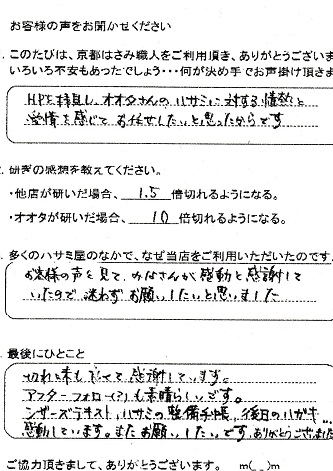 お客様の声をお聞かせください
. このたびは、京都はさみ職人をご利用頂き、ありがとうございま
いろいろ不安もあったでしょう・・・何が決め手でお声掛け頂きま
HPを拝見し、オオタさんのハサミに対する情熱と
愛情を感じて お任せしたいと思ったからです
. 研ぎの感想を教えてください。
・他店が研いだ場合、 1.5 倍切れるようになる。
・オオタが研いだ場合、 10 倍切れるようになる。
. 多くのハサミ屋のなかで、なぜ当店をご利用いただいたのです
お客様の声を見て、みなさんが感動と感謝して
いたので 迷わず お願いしたいと思いました
最後にひとこと
切れ味も 感謝しています。
アフターフォロー(?)も素晴らしいです。
シザーズテキスト、ハサミの整備手帳、後日のハガキ
感動しています。またお願いしたいです。ありがとうございました
ご協力頂きまして、ありがとうございます。 m(_ _)m